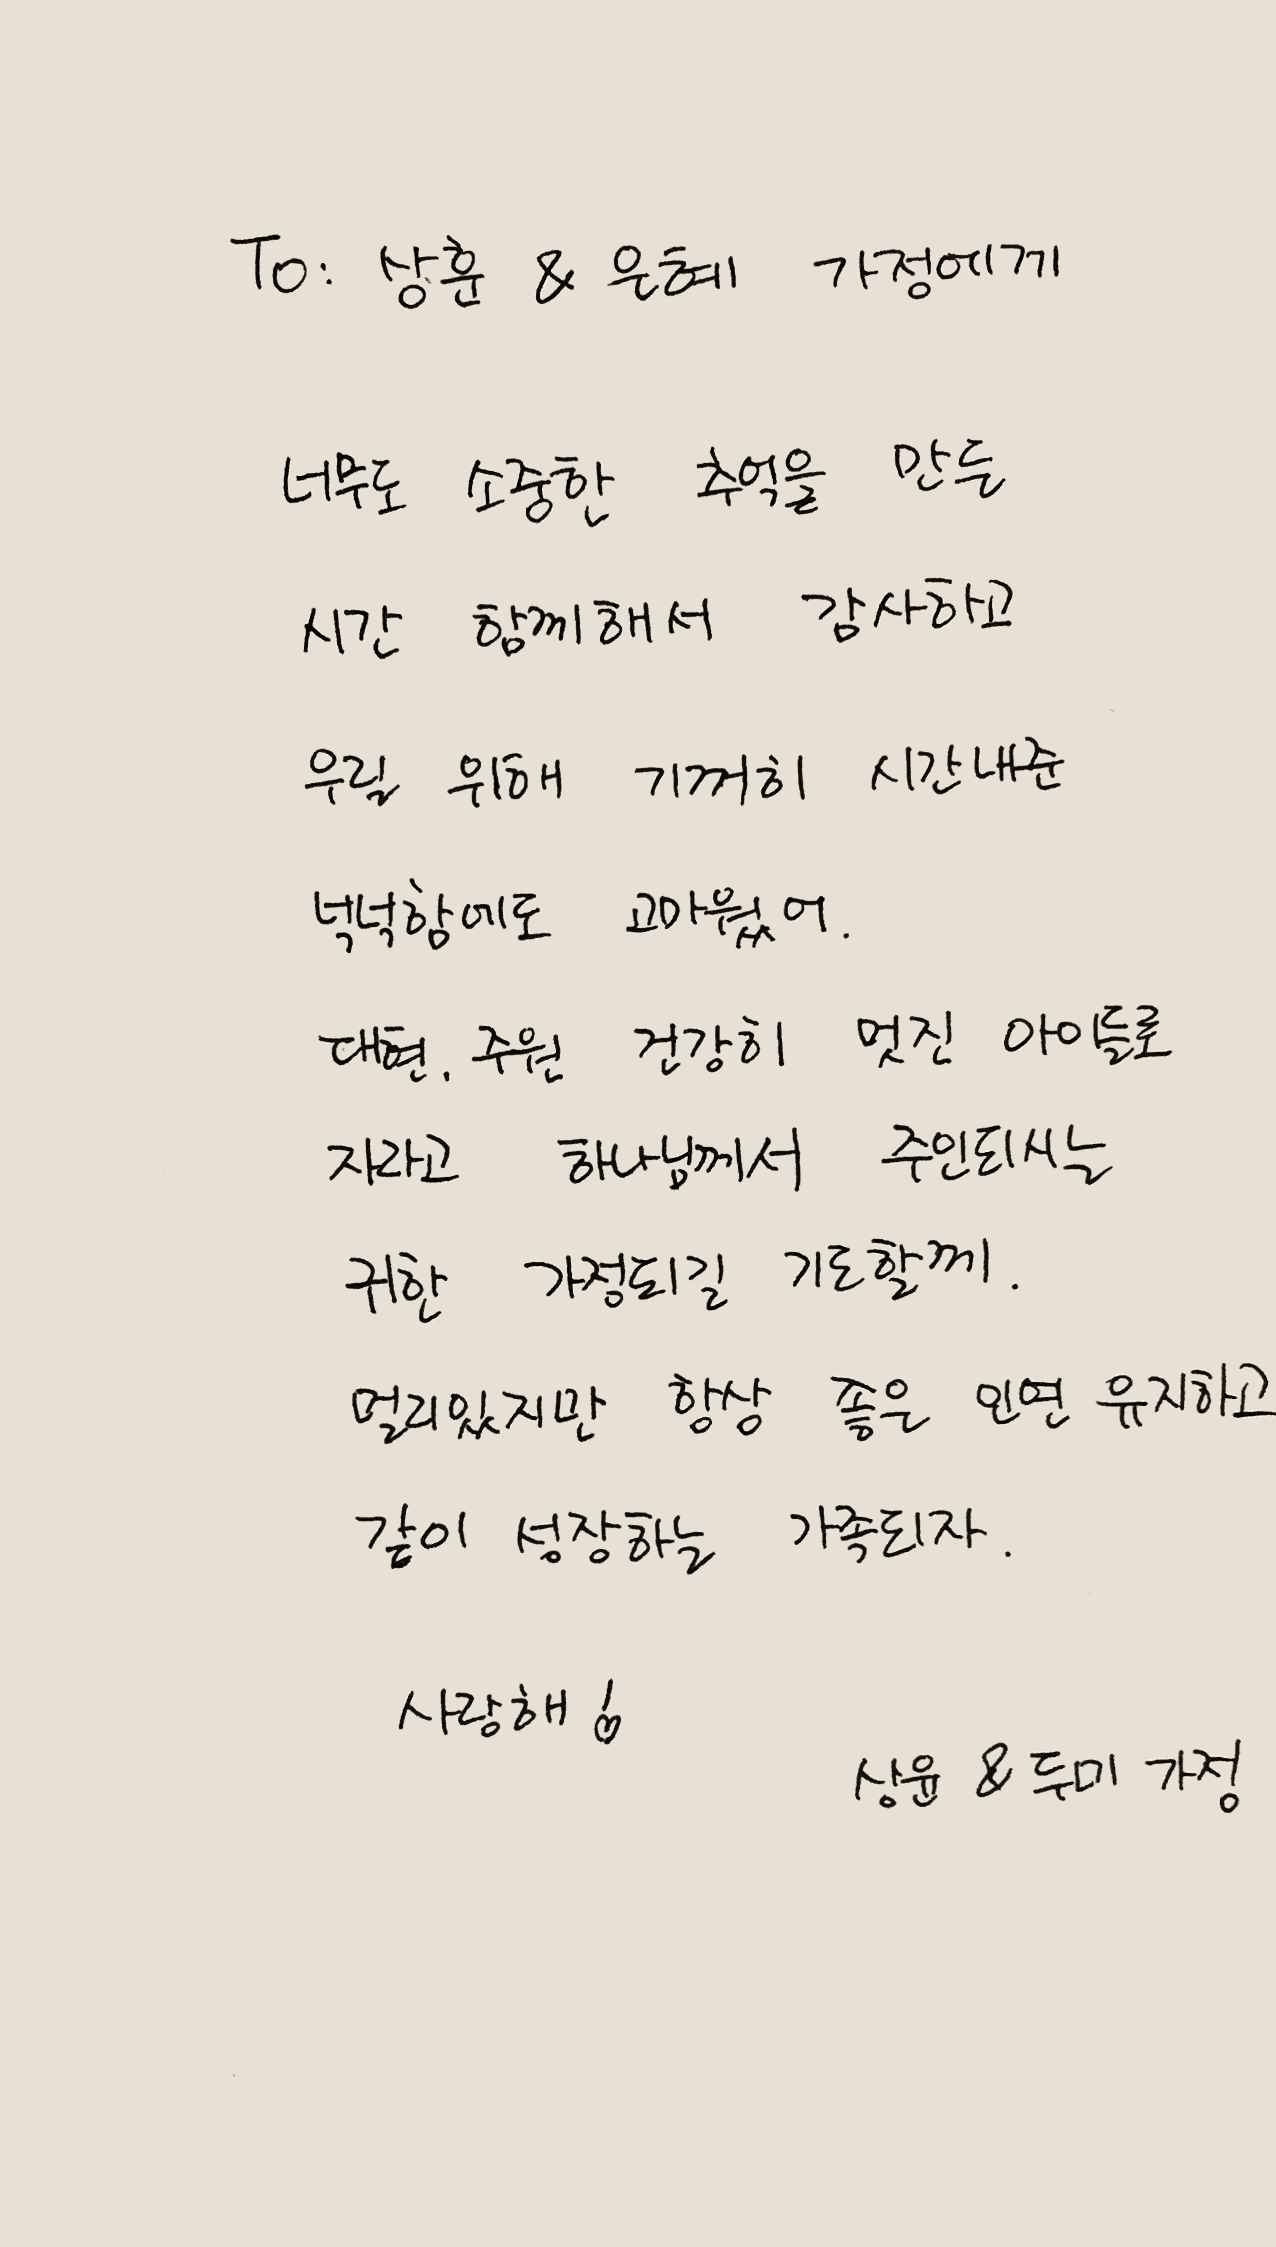 To: 상훈 & 은혜 가정에게
너무도 소중한 추억을 만든
시간 함께해서 감사하고
우릴 위해 기꺼히 시간내준
넉넉함에도 고마웠어.
대현, 주원 건강히 멋진 아이들로
자라고 하나님께서 주인되시는
귀한 가정되길 기도할께.
멀리있지만 항상 좋은 인연 유지하고
같이 성장하는 가족되자.
사랑해!
상윤 & 두미 가정